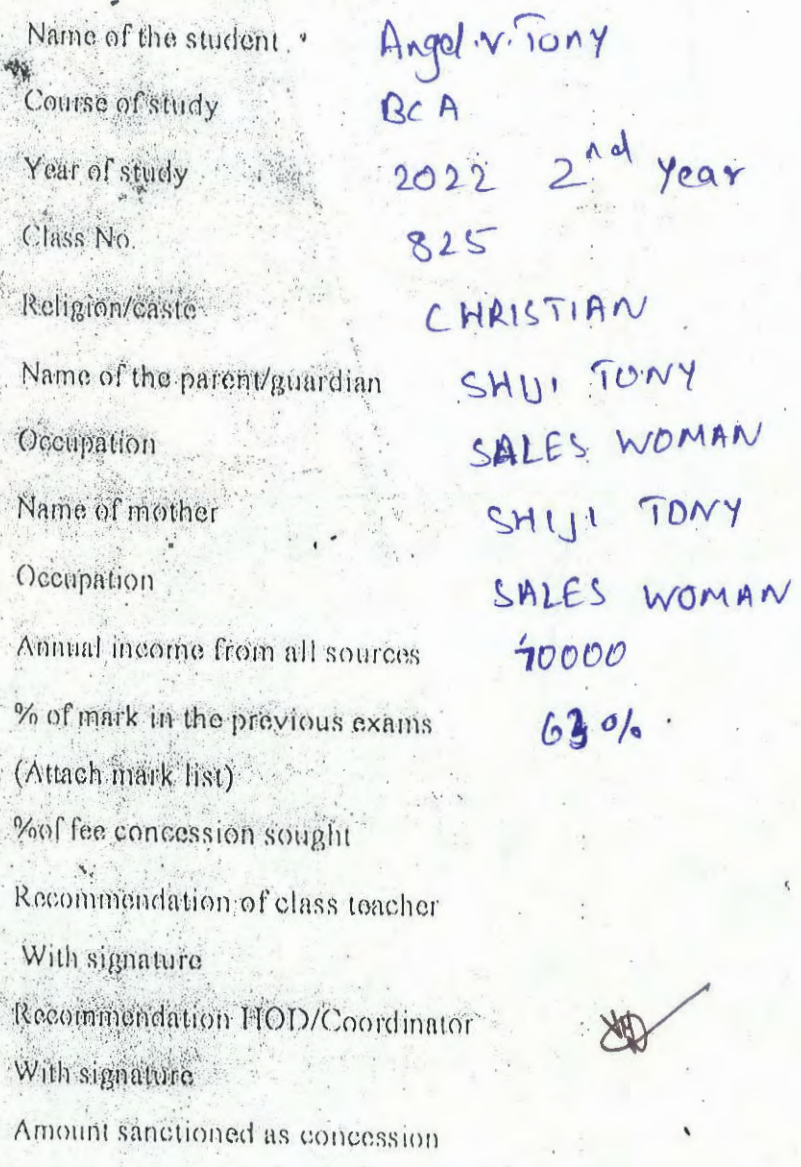 Name of the student Angel.V.Tony
Course of study BCA
Year of study 2022 2nd Year
Class No. 825
Religion/caste CHRISTIAN
Name of the parent/guardian SHIJI TONY
Occupation SALES WOMAN
Name of mother SHIJI TONY
Occupation SALES WOMAN
Annual income from all sources 70000
% of mark in the previous exams 63%
(Attach mark list)
%of fee concession sought
Recommendation of class teacher
With signature
Recommendation HOD/Coordinator
With signature
Amount sanctioned as concession